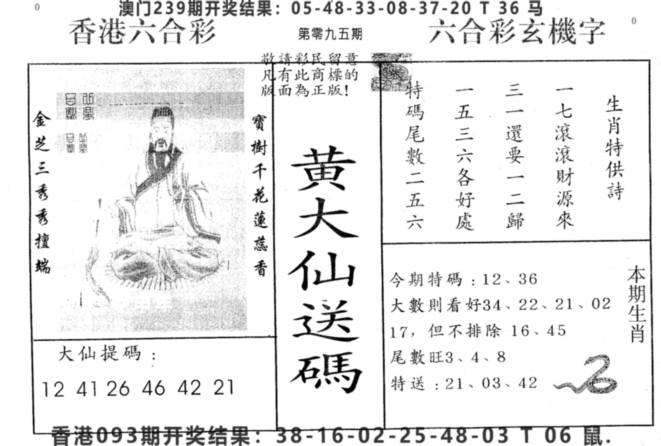 澳门239期开奖结果：05-48-33-08-37-20 T 36 马
香港六合彩
第零九五期
六合彩玄機字
敬請彩民留意
凡有此商標的
版面為正版！
金芝三秀秀擅端
寶樹千花蓮蕊香
黄大仙送碼
生肖特供詩
一七滾滾財源來
三一還要一二歸
一五三六各好處
特碼尾數二五六
大仙提碼：
12 41 26 46 42 21
本期生肖
今期特碼：12、36
大數則看好34、22、21、02
17，但不排除 16、45
尾數旺3、4、8
特送：21、03、42
香港093期开奖结果：38-16-02-25-48-03 T 06 鼠.